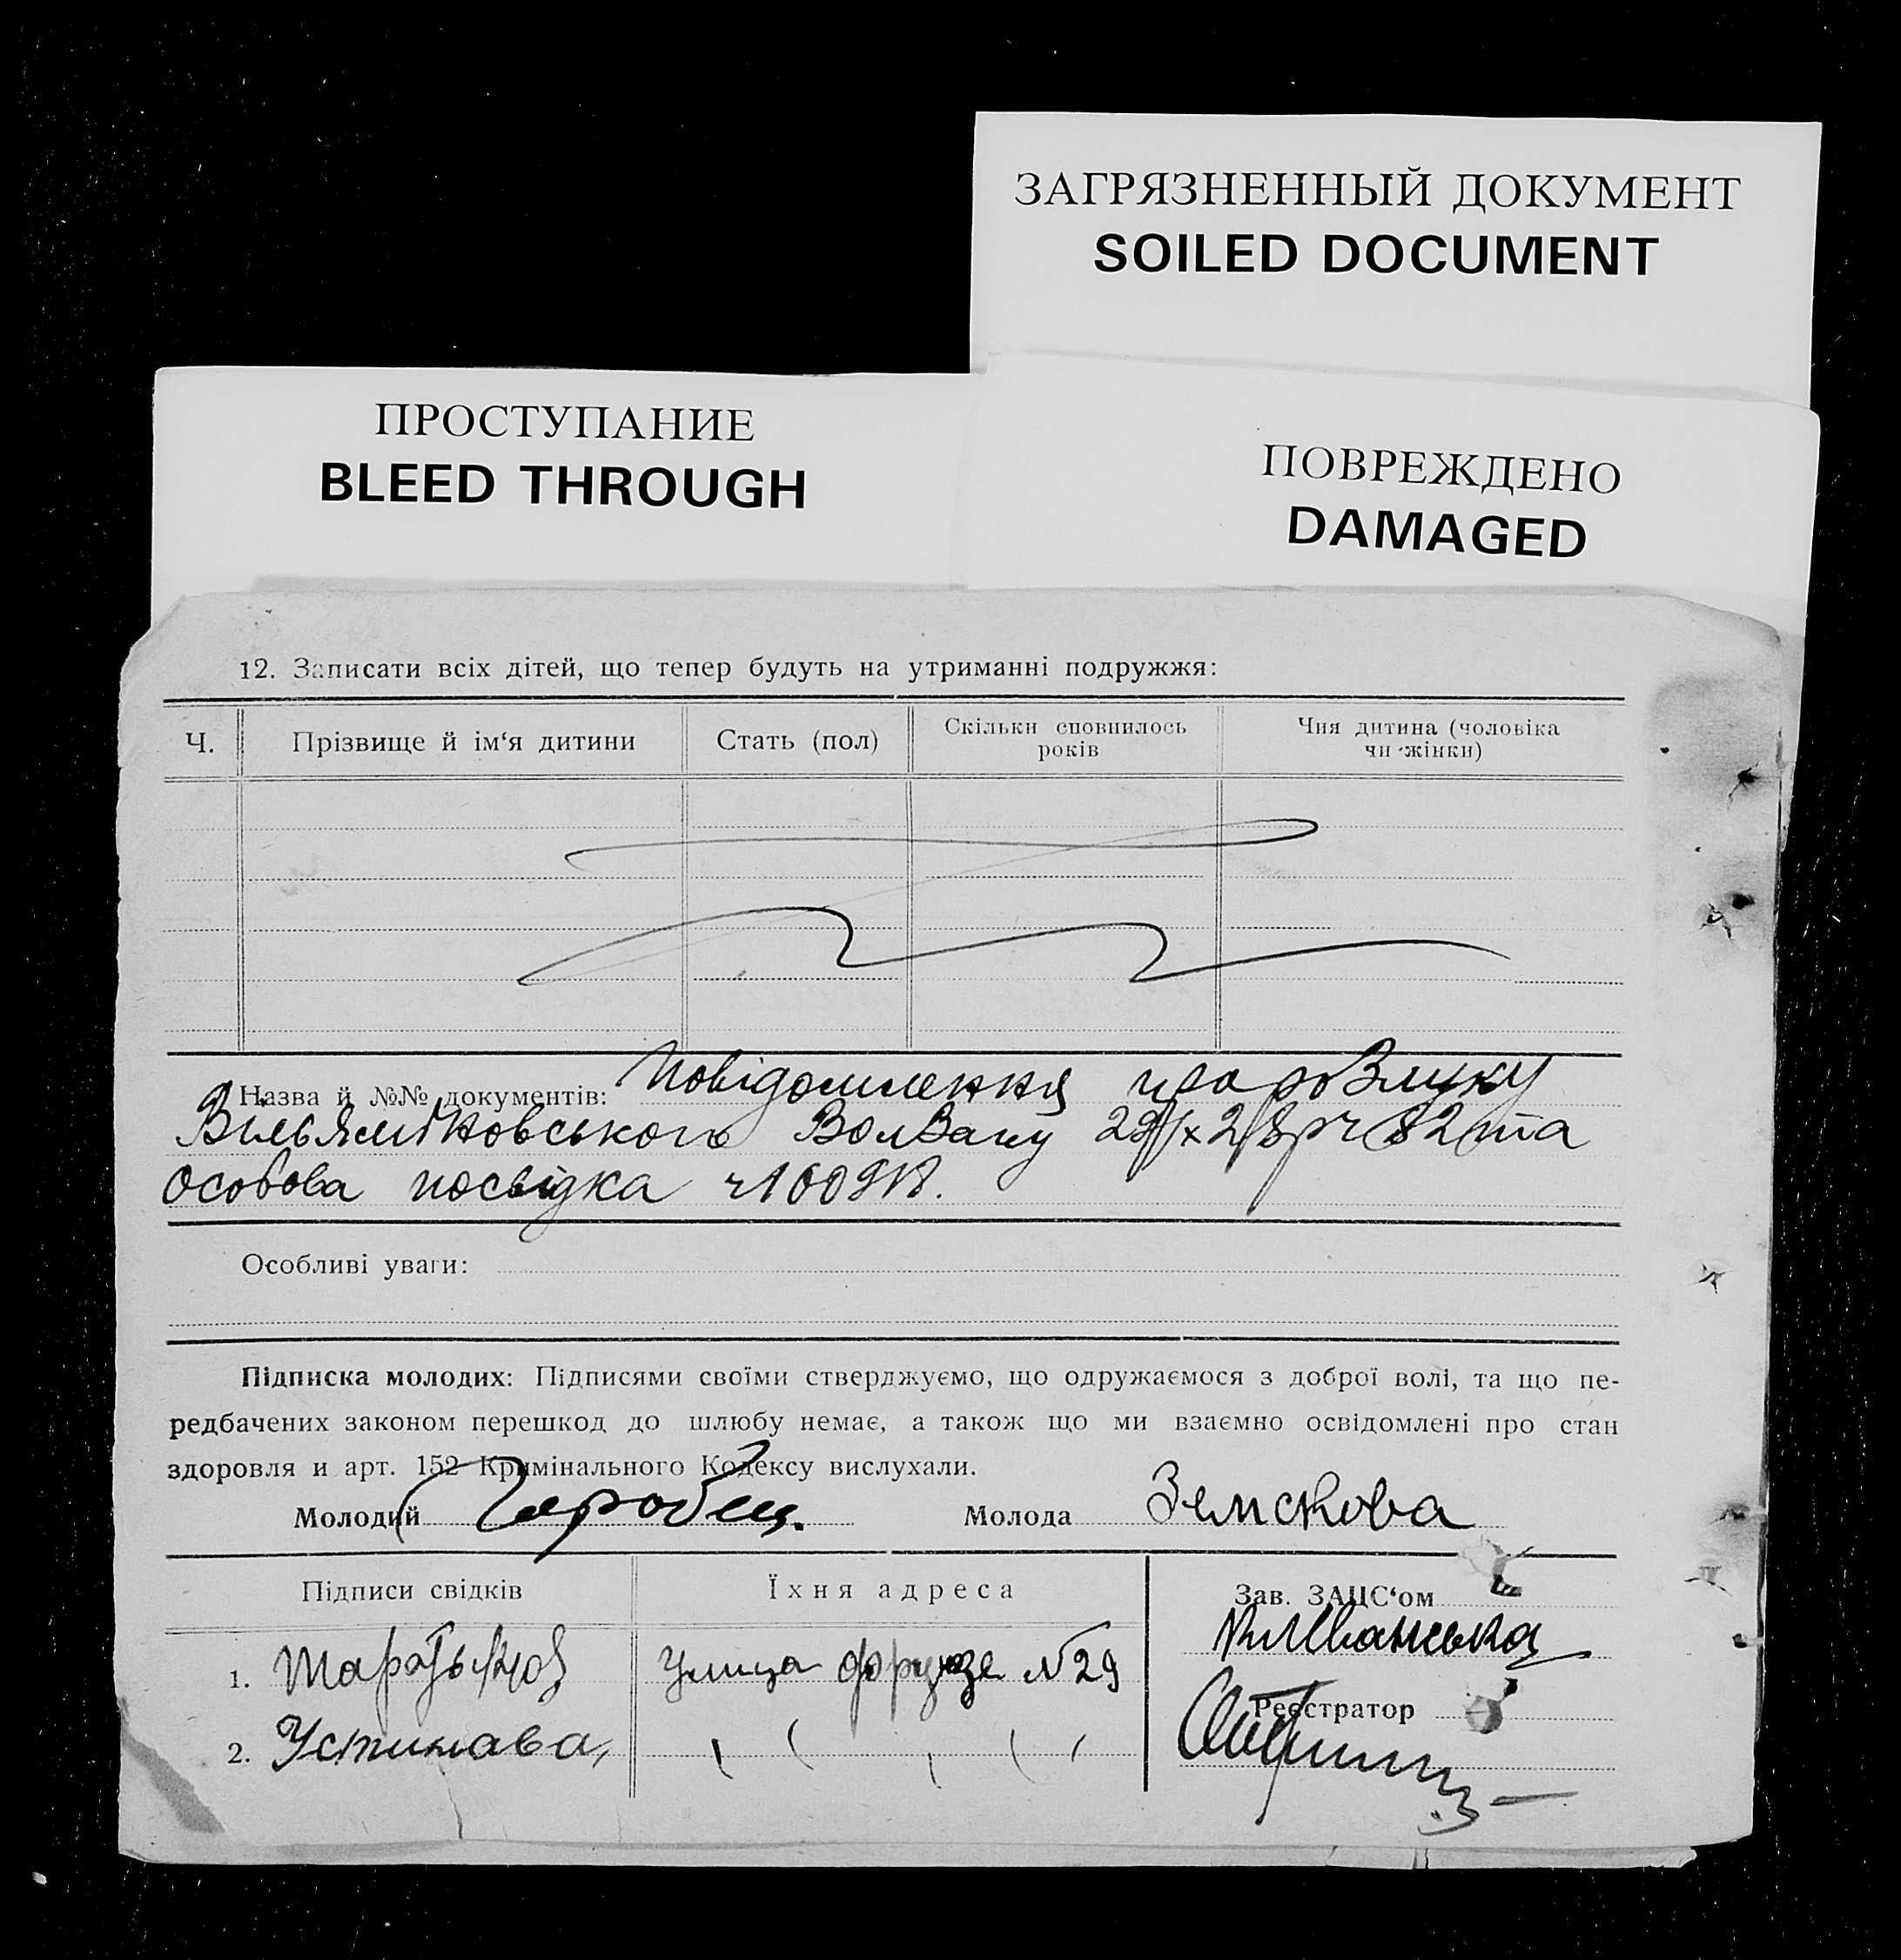 ЗАГРЯЗНЕННЫЙ ДОКУМЕНТ
SOILED DOCUMENT
ПРОСТУПАНИЕ
BLEED THROUGH
ПОВРЕЖДЕНО
DAMAGED
12. Записати всіх дітей, що тепер будуть на утриманні подружжя:
Ч.
Прізвище й ім‘я дитини
Стать (пол)
Скільки сповнилось
років
Чия дитина (чоловіка
чи жінки)
Назва й №№ документів: Повідомлення про розлуку
Вільяминовського 
Особова посвідка ч
Особливі уваги:
Підписка молодих: Підписями своїми стверджуємо, що одружаємося з доброї волі, та що пе-
редбачених законом перешкод до шлюбу немає, а також що ми взаємно освідомлені про стан
здоровля и арт. 152 Кримінального Кодексу вислухали.
Молодий Молода Земскова
Підписи свідків
Їхня адреса
Зав. ЗАЦС‘ом
1. Улица Фрунзе №29
Реєстратор
2. Устинава